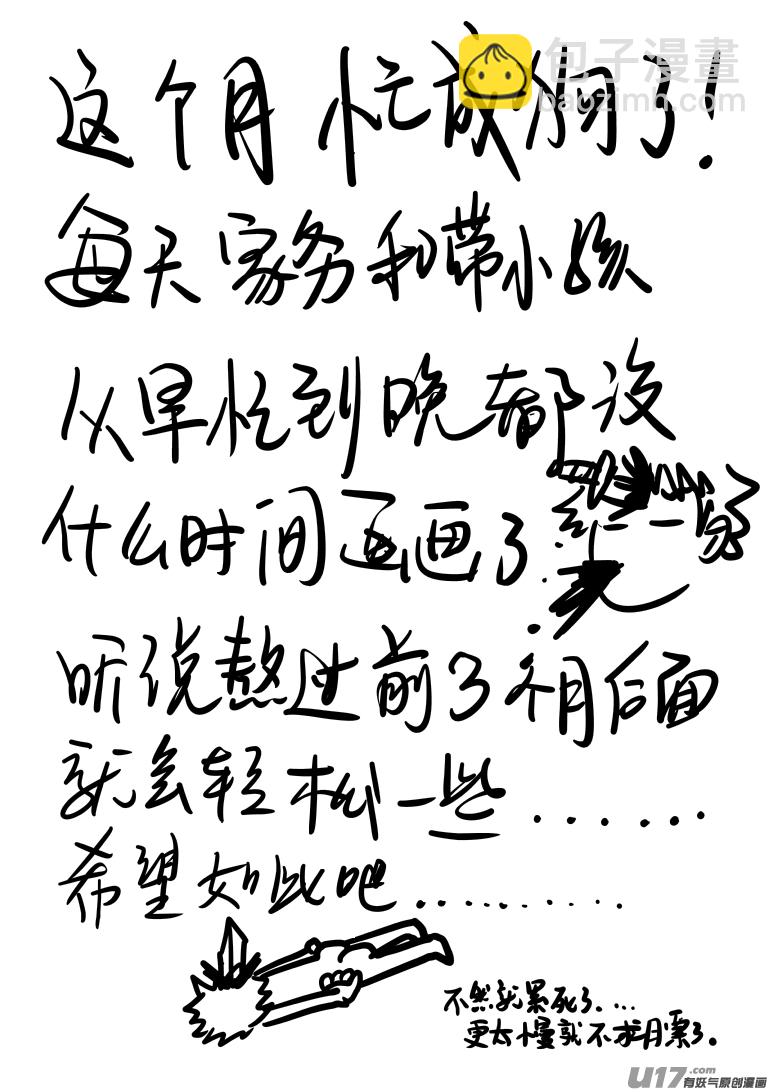 这个月忙成狗了!
包子漫畫
baozimh.com
每天家务和带小孩
从早忙到晚都没
什么时间画画了
听说熬过前3个月后面
就会轻松一些......
希望如此吧..........
不然就累死了....
更太慢就不求月票了。
U17.com
有妖气原创漫画